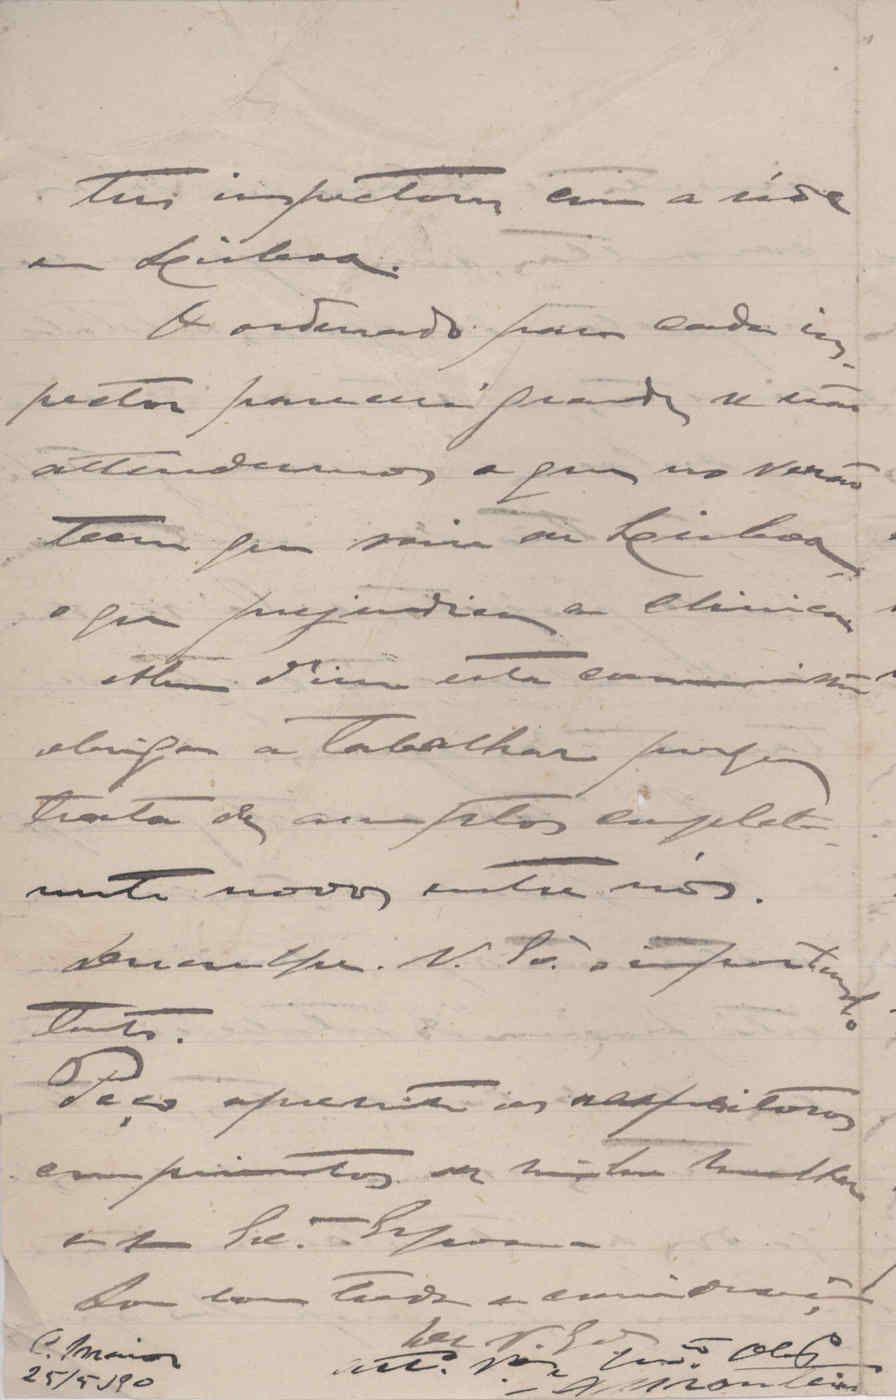 tres inspectores com a séde
em Lisboa.
O ordenado para cada ins-
pector parecerá grande, se não
attendermos a que, no verão
teem que sair de Lisboa,
o que prejudica a clinica
Alem d'isso esta commissão
obriga a trabalhar porque
trata de assumptos completa-
mente novos entre nós.
Desculpe V. Exª. o importunal-o
tanto.
Peço apresente os respeitosos
cumprimentos de minha mulher
a sua Exma. Esposa
Sou com toda a consideração
De V. Exª
Attº. Vor
C. Maior
25/5/90
A Monteiro